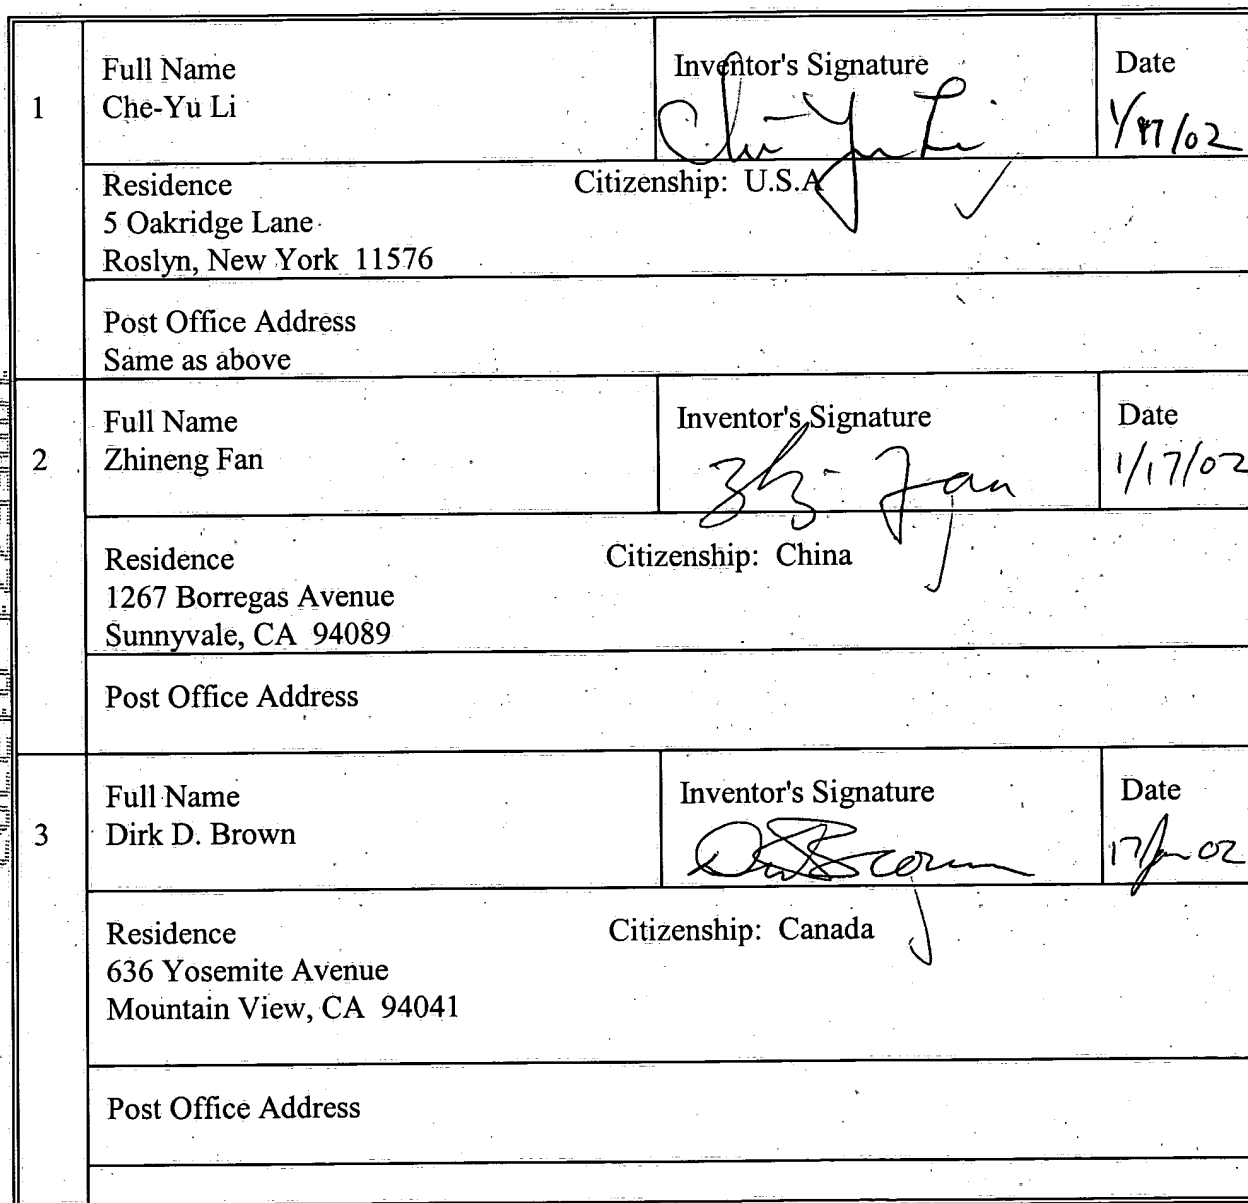 1
Full Name
Che-Yu Li
Inventor's Signature
Che-Yu Li
Date
1/17/02
Residence
5 Oakridge Lane
Roslyn, New York 11576
Citizenship: U.S.A
Post Office Address
Same as above
2
Full Name
Zhineng Fan
Inventor's Signature
Zhi- Fan
Date
1/17/02
Residence
1267 Borregas Avenue
Sunnyvale, CA 94089
Citizenship: China
Post Office Address
3
Full Name
Dirk D. Brown
Inventor's Signature
Date
17/Jan 02
Residence
636 Yosemite Avenue
Mountain View, CA 94041
Citizenship: Canada
Post Office Address